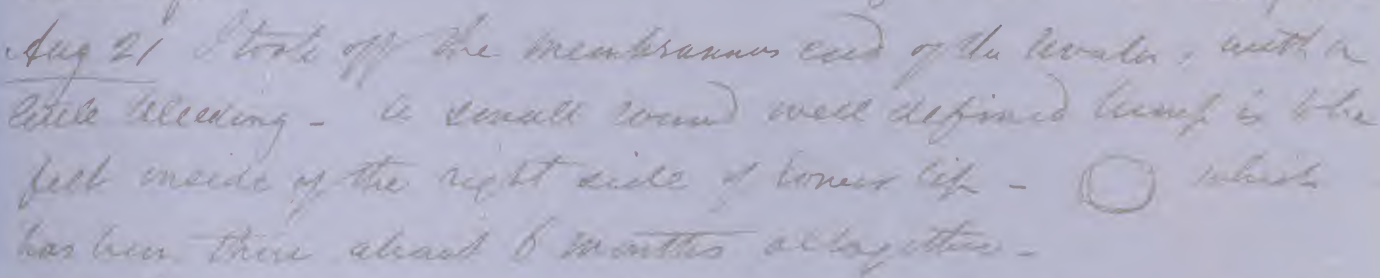 Aug 21 I took off the membranous end of the uvula, with a
little bleeding - A small round well defined lump is to be
felt inside of the right side of lower lip - which
has been there about 6 months altogether -